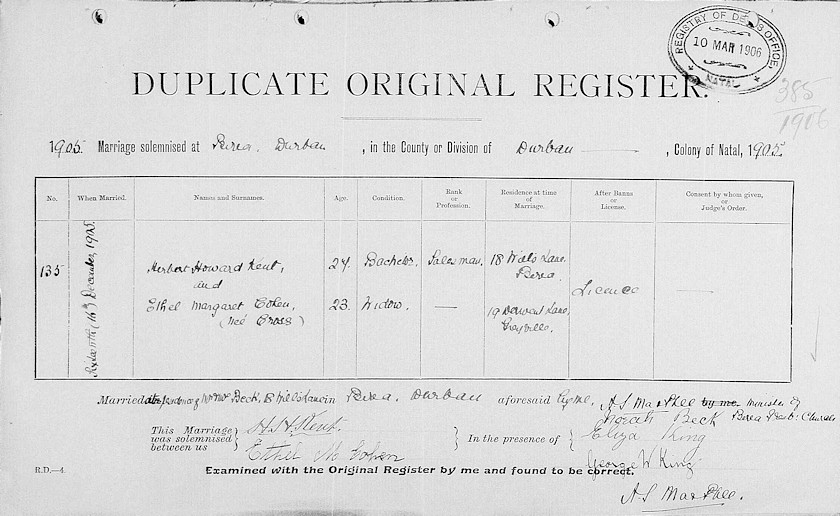 REGISTRY OF DEEDS OFFICE,
10 MAR 1906
NATAL
DUPLICATE ORIGINAL REGISTER.
385
1906
1905. Marriage solemnised at Berea, Durban, in the County or Division of Durban, Colony of Natal, 1905.
No. When Married. Names and Surnames. Age. Condition. Rank or Profession. Residence at time of Marriage. After Banns or License. Consent by whom given, or Judge's Order.
135 Sixteenth (16th) December, 1905. Herbert Howard Kent, 24. Bachelor. Salesman. 18 Wills Lane Berea.
and Licence
Ethel Margaret Cohen, 23. Widow. — 19 Derwent Lane, Greyville.
(née Cross)
Married at Beck, 18 Wills Lane in Berea, Durban aforesaid by me, A S MacPhee by me Minister of
Berea Presb: Church
This Marriage was solemnised between us H. H. Kent. In the presence of Beck
Ethel M Cohen Eliza King
George W King
R.D.—4. Examined with the Original Register by me and found to be correct.
A S MacPhee.